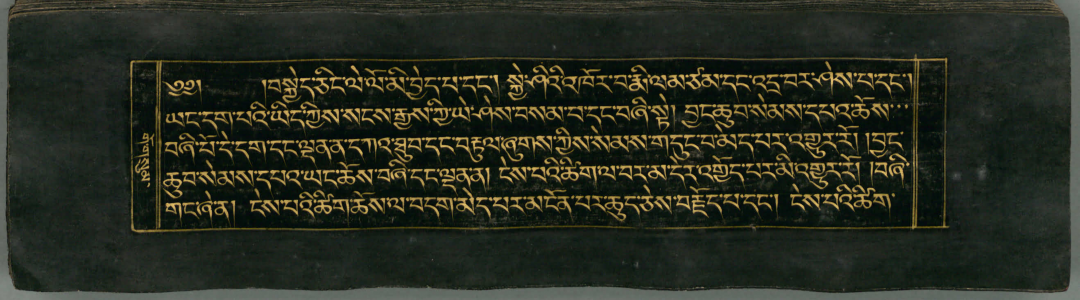 ༄༅། །བསྐྱེད་ཅིང་ལེ་ལོ་མི་བྱེད་པ་དང་། སྐྱེ་ཤིའི་འཁོར་བ་རྨི་ལམ་ཙམ་དང་འདྲ་བར་ཤེས་པ་དང་།
ཡང་དག་པའི་ཡིད་ཀྱིས་སངས་རྒྱས་ཀྱི་ཡེ་ཤེས་བསམ་བ་དང་བཞི་སྟེ། བྱང་ཆུབ་སེམས་དཔའ་ཆོས་
བཞི་པོ་དེ་དག་དང་ལྡན་ན་དཀའ་ཐུབ་དང་བརྟུལ་ཞུགས་ཀྱིས་སེམས་གདུང་བ་མེད་པར་འགྱུར་རོ། །བྱང་
ཆུབ་སེམས་དཔའ་ཡང་ཆོས་བཞི་དང་ལྡན་ན། ངེས་པའི་ཚིག་ལ་བར་མ་དོར་འགྱོད་པར་མི་འགྱུར་རོ། །བཞི་
གང་ཞེ་ན། ངེས་པའི་ཚིག་ཆོས་ལ་བདག་མེད་པར་མངོན་པར་ཆུད་ཅེས་བརྗོད་པ་དང་། ངེས་པའི་ཚིག་